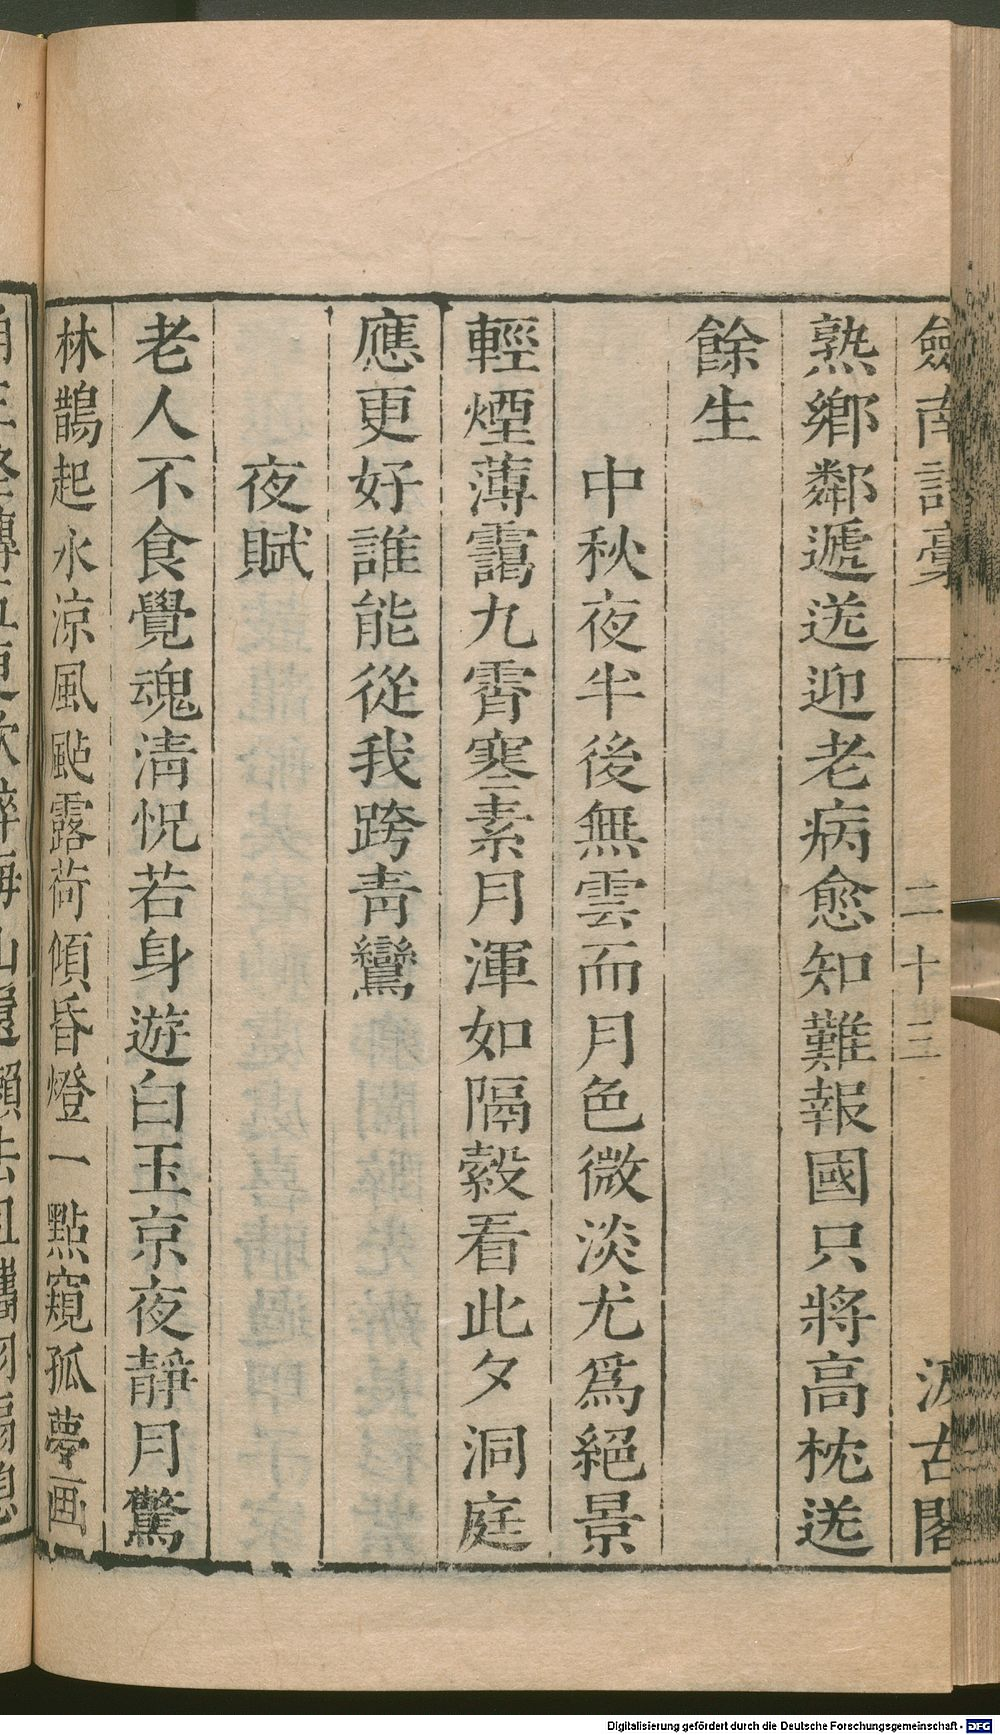 劍南詩稾 二十三 汲古閣
熟鄉鄰遞送迎老病愈知難報國只將高枕送
餘生
中秋夜半後無雲而月色微淡尤爲絕景
輕煙薄靄九霄寒素月渾如隔縠看此夕洞庭
應更好誰能從我跨青鸞
夜賦
老人不食覺魂清怳若身遊白玉京夜靜月驚
林鵲起水涼風颭露荷傾昏燈一點窺孤夢画
Digitalisierung gefördert durch die Deutsche Forschungsgemeinschaft - DFG